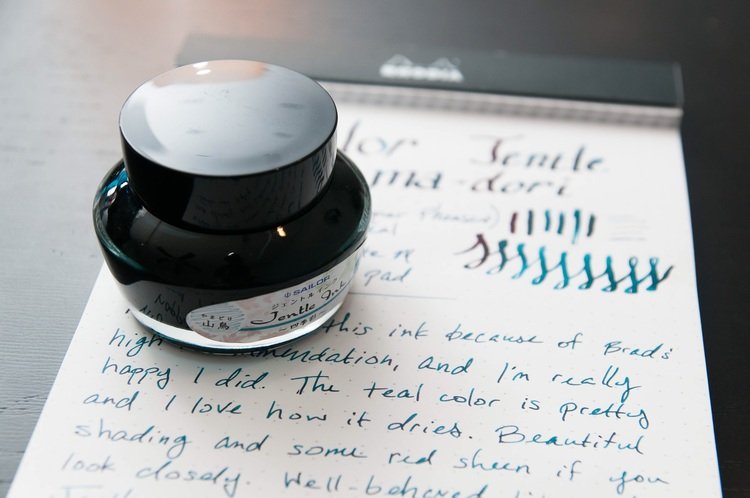 RHODIA
lor Jentle
ma-dori
Pheasant)
pad
SAILOR
ジェントルインク
Jentle Ink
山鳥
~四季彩~
this ink because of Brad's
high mmendation, and I'm really
happy I did. The teal color is pretty
and I love how it dries. Beautiful
shading and some red sheen if you
look closely. Well-behaved